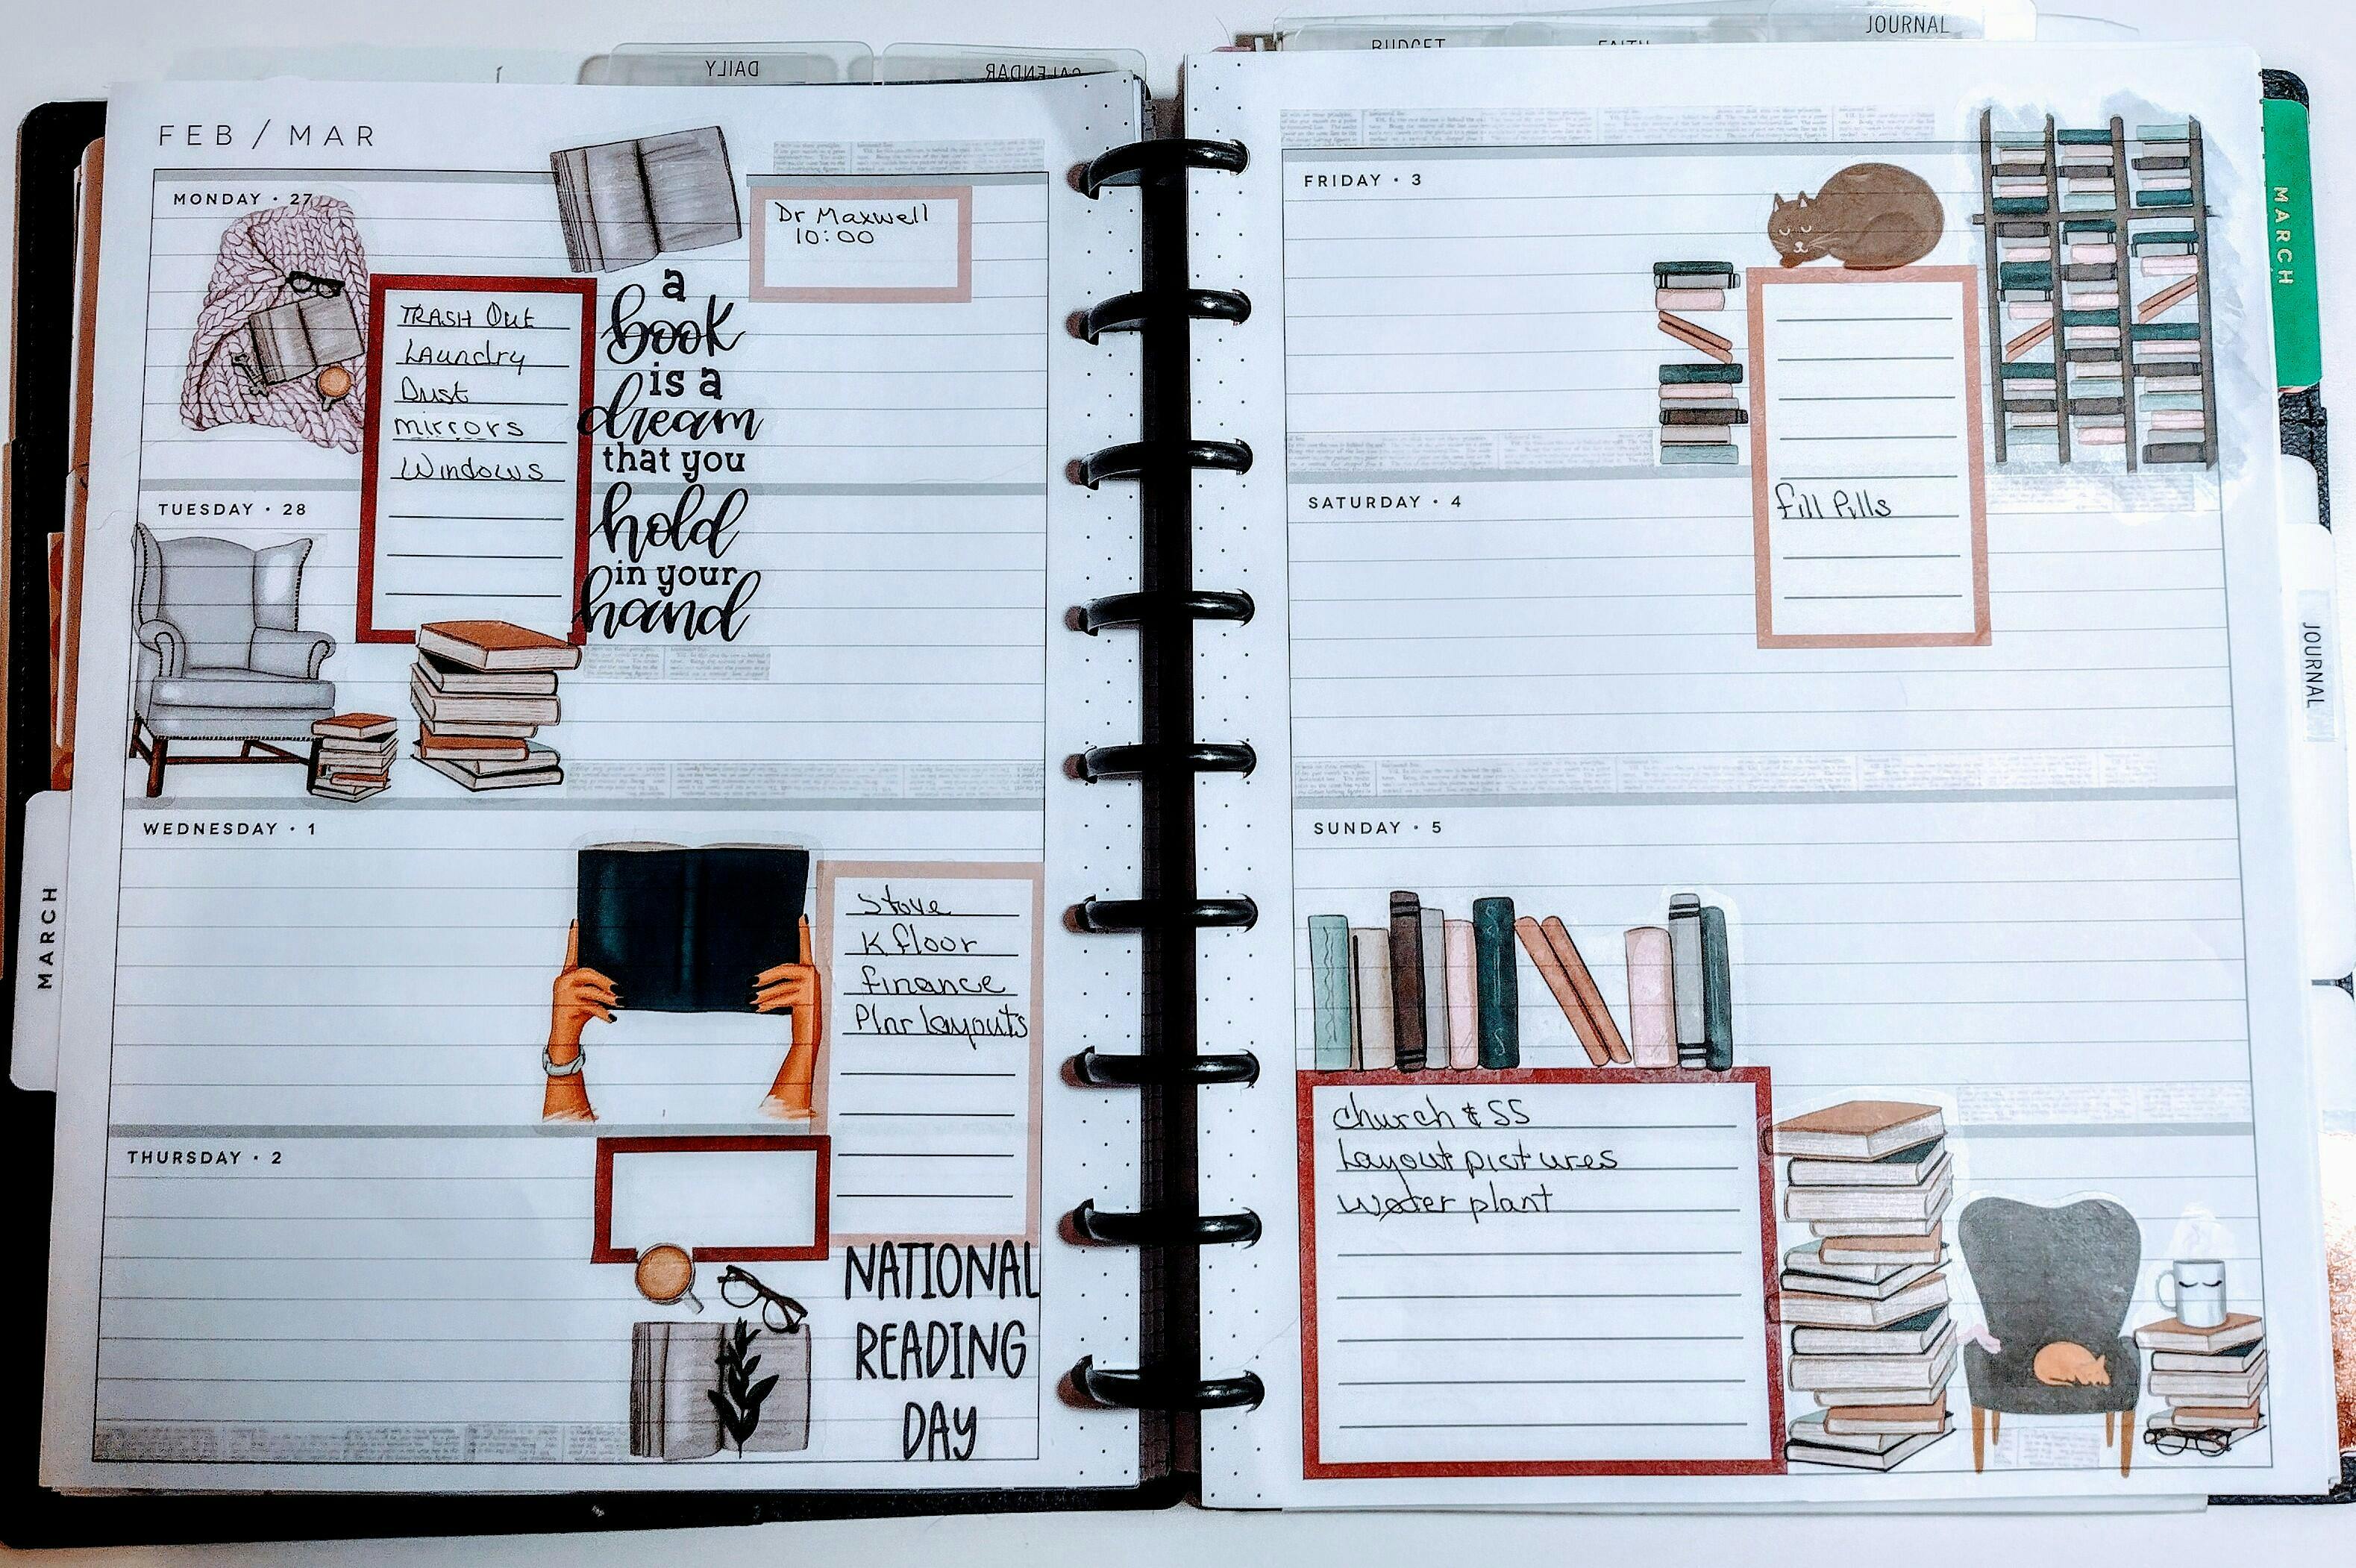 DAILY
CALENDAR
BUDGET
FAITH
JOURNAL
FEB / MAR
MONDAY • 27
TRASH Out
Laundry
Dust
mirrors
Windows
a
book
is a
dream
that you
hold
in your
hand
Dr Maxwell
10:00
TUESDAY • 28
WEDNESDAY • 1
Stove
K floor
finance
Plnr Layouts
THURSDAY • 2
NATIONAL
READING
DAY
MARCH
FRIDAY • 3
SATURDAY • 4
fill Pills
SUNDAY • 5
Church & SS
Layout pictures
water plant
MARCH
JOURNAL